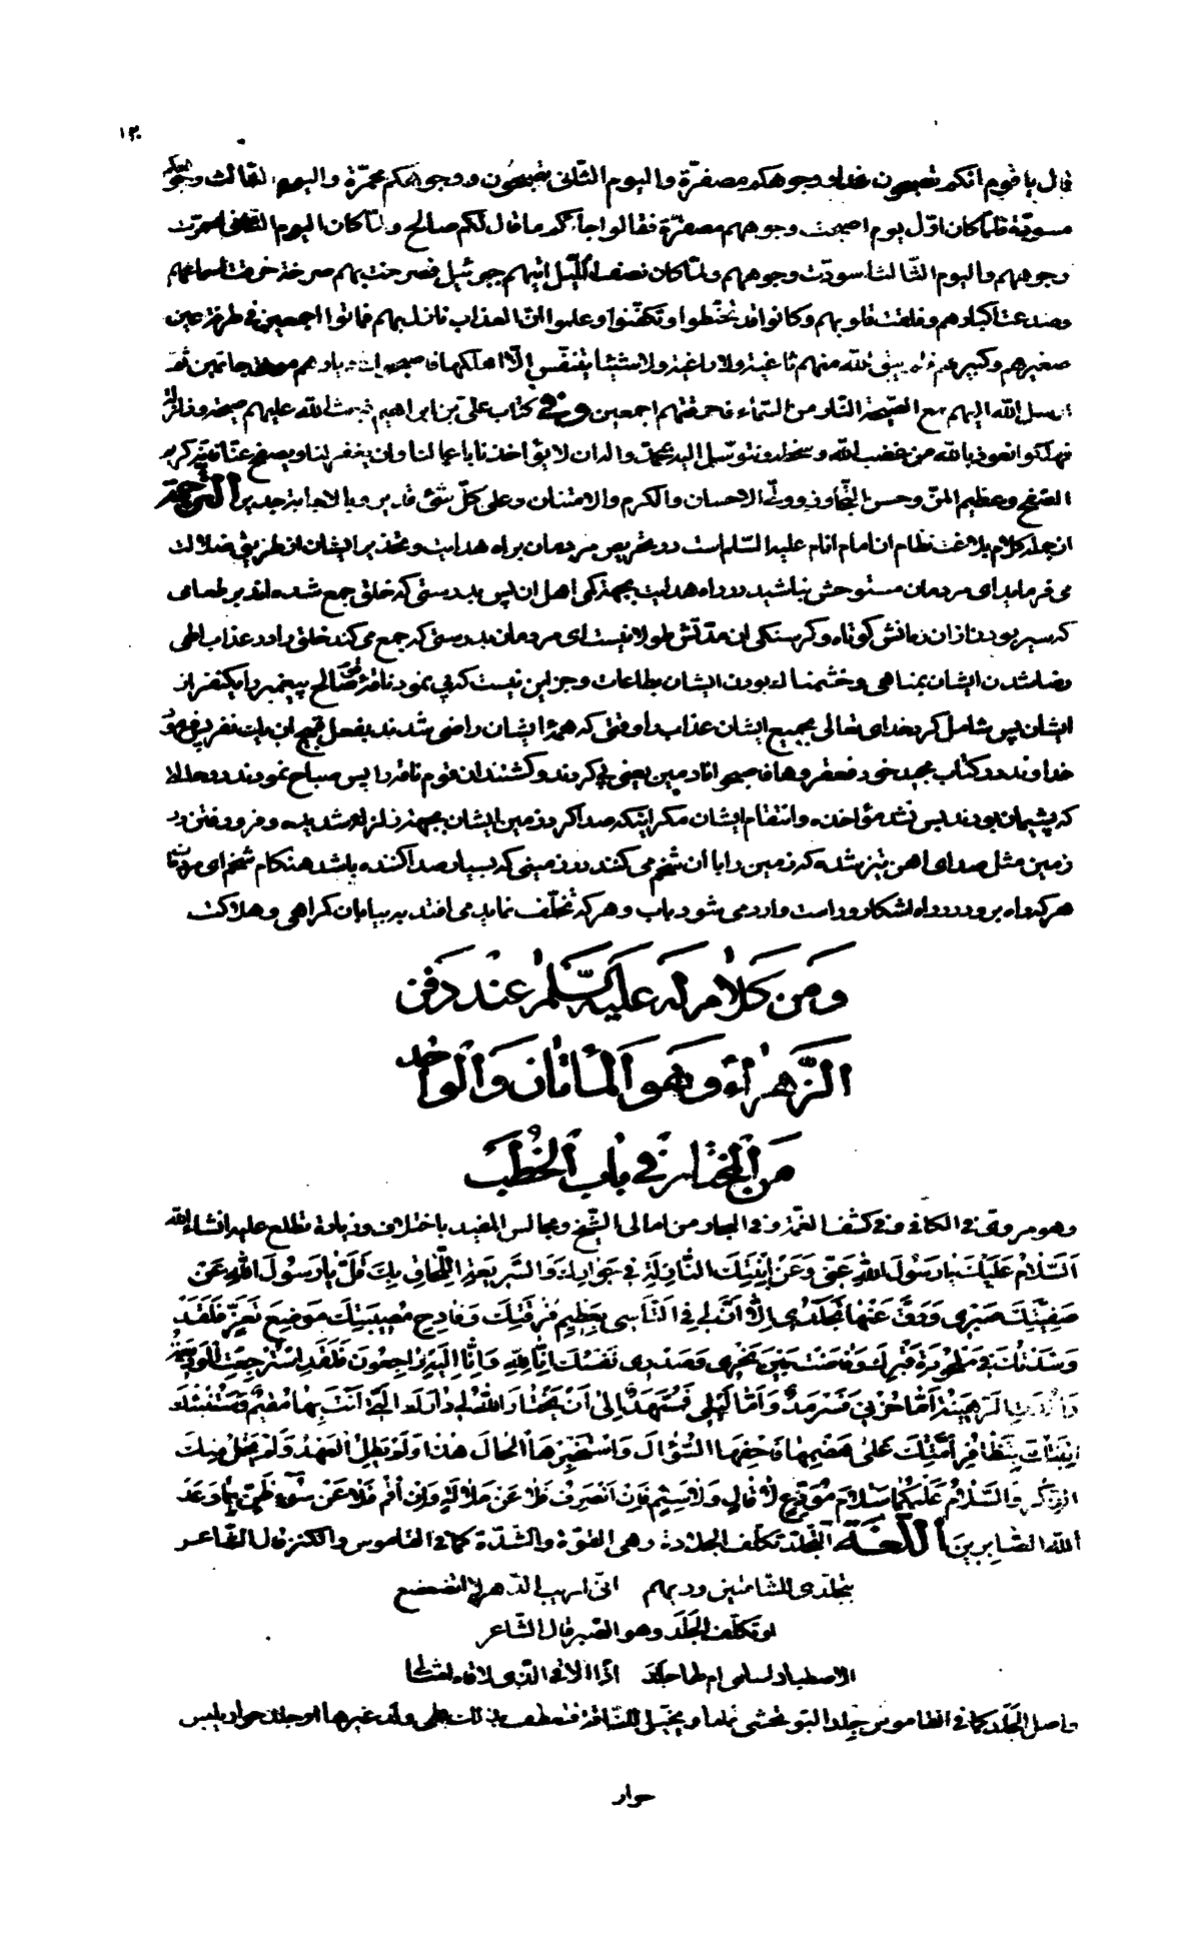 ١٣٠
قال يا قوم انكم تصبحون غدا و وجوهكم مصفرّة واليوم الثّانى تصبحون و وجوهكم محمرّة واليوم الثالث وجوهكم
مسودّة فلمّا كان اوّل يوم اصبحت وجوههم مصفرّة فقالوا جاءكم ما قال لكم صالح ولمّا كان اليوم الثّانى احمرّت
وجوههم واليوم الثّالث اسودّت وجوههم ولمّا كان نصف اللّيل اتيهم جبرئيل فصرخ بهم صرخة خرقت اسماعهم
وصدعت اكبادهم وفلقت قلوبهم وكانوا قد تحنّطوا وتكفّنوا وعلموا انّ العذاب نازل بهم فماتوا اجمعين فى طرفة عين
صغيرهم وكبيرهم فلم يبق الله منهم ثاغية ولا راغية ولا شيئا يتنفّس الّا اهلكها فاصبحوا فى ديارهم موتى جاثمين ثمّ
ارسل الله اليهم مع الصّيحة النّار من السّماء فاحرقتهم اجمعين وفى كتاب علىّ بن ابراهيم فبعث الله عليهم صيحة وزلزلة
فهلكوا نعوذ بالله من غضب الله وسخطه ونتوسّل اليه بمحمّد واله ان لا يؤاخذنا باعمالنا وان يغفر لنا ويصفح عنّا فانّه كريم
الصّفح وعظيم المنّ وحسن التّجاوز وولىّ الاحسان والكرم والامتنان وعلى كلّ شئ قدير وبالاجابة جدير الترجمة
از جمله كلام بلاغت نظام ان امام انام عليه السّلام است در تحريص مردمان براه هدايت و تحذير ايشان از طريق ضلالت
مى فرمايد اى مردمان مستوحش نباشيد در راه هدايت بجهة كمى اهل ان پس بدرستى كه خلق جمع شده اند بر طعامى
كه سير بودن از ان زمانش كوتاه و كرسنكى ان مدّتش طولانيست اى مردمان بدرستى كه جمع مى كند خلق را در عذاب الهى
رضا شدن ايشان بمناهى و خشمناك بودن ايشان بطاعات و جز اين نيست كه پى نمود ناقهٔ صالح پيغمبر را يكنفر از
ايشان پس شامل كرد خداى تعالى بجميع ايشان عذاب را وقتى كه همهٔ ايشان راضى شدند بفعل قبيح ان يك نفر پس فرمود
خداوند در كتاب مجيد خود فعقروها فاصبحوا نادمين يعنى پى كردند و كشتند ان قوم ناقه را پس صباح نمودند در حالا
كه پشيمان بودند پس نشد مؤاخذه و انتقام ايشان مكر اينكه صدا كرد زمين ايشان بجهة زلزله شديده و فرو رفتن در
زمين مثل صداى اهن تيز شده كه زمين را با ان شخم مى كنند در زمينى كه بسيار صدا كننده باشد هنكام شخم اى مردمان
هر كه راه برود در راه اشكار و راست وارد مى شود باب و هر كه تخلّف نمايد مى افتد به بيابان كمراهى و هلاكت
وَمِن كَلامٍ لَه عَلَيهِ السَّلامُ عِندَ دَفنِ
الزَّهراءِ وَهُوَ المائتانِ وَالواحِد
مِنَ المُختارِ فى بابِ الخُطَبِ
وهو مروىّ فى الكافى وفى كشف الغمّة وفى البحار من امالى الشّيخ ومجالس المفيد باختلاف وزيادة تطلع عليه انشاء الله
اَلسَّلامُ عَلَيْكَ يا رَسُولَ اللهِ عَنّى وَعَنْ اِبْنَتِكَ النّازِلَةِ فى جِوارِكَ وَالسَّريعَةِ اللِّحاقِ بِكَ قَلَّ يا رَسُولَ اللهِ عَنْ
صَفِيَّتِكَ صَبْرى وَرَقَّ عَنْها تَجَلُّدى اِلّا اَنَّ لى فِى التَّأَسّى بِعَظيمِ فُرْقَتِكَ وَفادِحِ مُصيبَتِكَ مَوْضِعَ تَعَزٍّ فَلَقَدْ
وَسَّدْتُكَ فى مَلْحُودَةِ قَبْرِكَ وَفاضَتْ بَيْنَ نَحْرى وَصَدْرى نَفْسُكَ اِنّا لِلّهِ وَاِنّا اِلَيْهِ راجِعُونَ فَلَقَدِ اسْتُرْجِعَتِ الْوَديعَةُ
وَاُخِذَتِ الرَّهينَةُ اَمّا حُزْنى فَسَرْمَدٌ وَاَمّا لَيْلى فَمُسَهَّدٌ اِلى اَنْ يَخْتارَ اللهُ لى دارَكَ الَّتى اَنْتَ بِها مُقيمٌ وَسَتُنَبِّئُكَ
اِبْنَتُكَ بِتَظافُرِ اُمَّتِكَ عَلى هَضْمِها فَاَحْفِهَا السُّؤالَ وَاسْتَخْبِرْهَا الْحالَ هذا وَلَمْ يَطُلِ الْعَهْدُ وَلَمْ يَخْلُ مِنْكَ
الذِّكْرُ وَالسَّلامُ عَلَيْكُما سَلامَ مُوَدِّعٍ لا قالٍ وَلا سَئِمٍ فَاِنْ اَنْصَرِفْ فَلا عَنْ مَلالَةٍ وَاِنْ اُقِمْ فَلا عَنْ سُوءِ ظَنٍّ بِما وَعَدَ
اللهُ الصّابِرينَ اللغة التّجلّد تكلّف الجلادة وهى القوّة والشّدّة كما فى القاموس والكنز قال الشّاعر
بتجلّدى للشّامتين وريبهم انّى لريب الدّهر لا اتضعضع
او تكلّف الجَلَد وهو الصّبر قال الشّاعر
الا اصطبار لسلمى ام لها جَلَد اذا الاقى الّذى لاقاه امثالى
واصل الجَلَد كما فى القاموس جلد البوّ يحشى ثماما ويخيّل للنّاقة فتعطف بذلك على ولد غيرها او جلد حوار يلبس
حوار